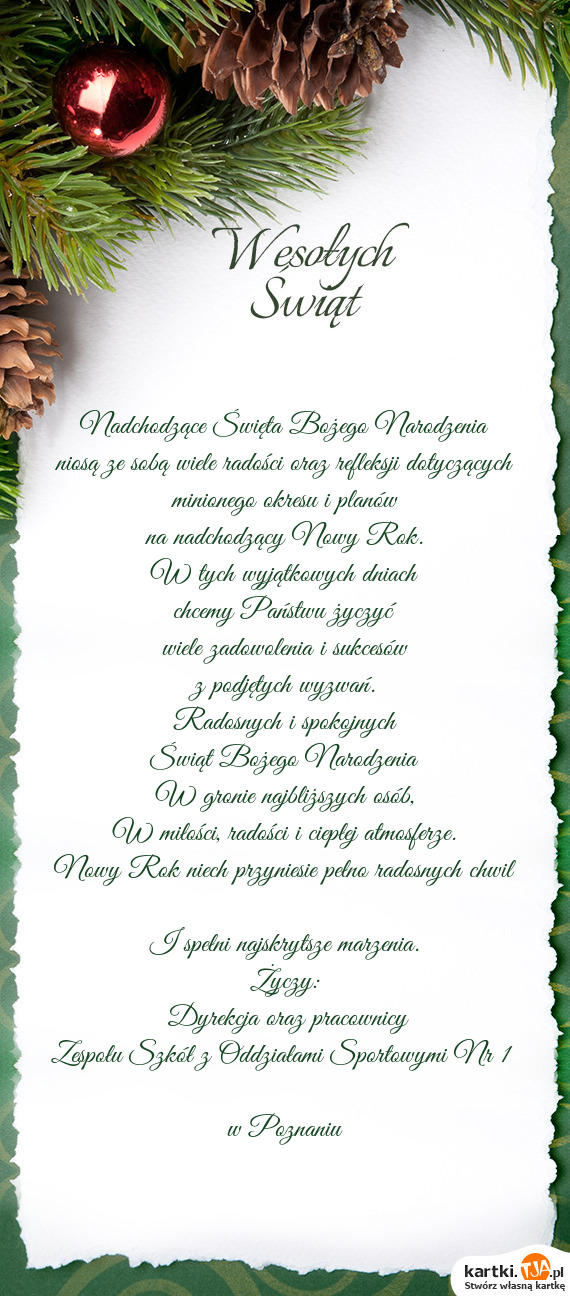 Wesołych
Świąt
Nadchodzące Święta Bożego Narodzenia
niosą ze sobą wiele radości oraz refleksji dotyczących
minionego okresu i planów
na nadchodzący Nowy Rok.
W tych wyjątkowych dniach
chcemy Państwu życzyć
wiele zadowolenia i sukcesów
z podjętych wyzwań.
Radosnych i spokojnych
Świąt Bożego Narodzenia
W gronie najbliższych osób,
W miłości, radości i ciepłej atmosferze.
Nowy Rok niech przyniesie pełno radosnych chwil
I spełni najskrytsze marzenia.
Życzy:
Dyrekcja oraz pracownicy
Zespołu Szkół z Oddziałami Sportowymi Nr 1
w Poznaniu
kartki.TJA.pl
Stwórz własną kartkę